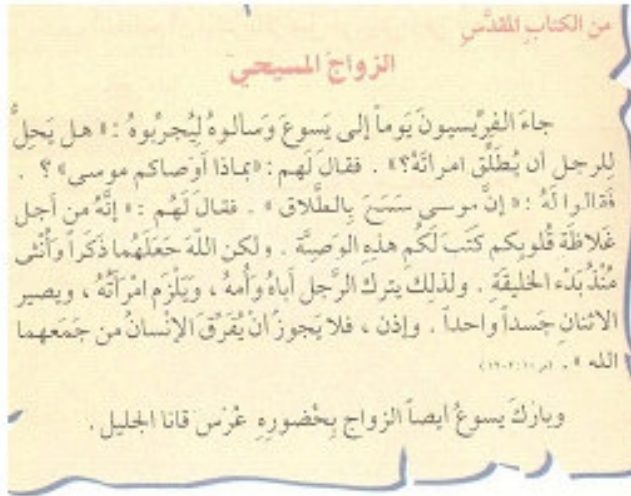 من الكتاب المقدَّس
الزواج المسيحي
جاءَ الفرِّيسيونَ يَوماً إلى يَسوعَ وَسألوهُ لِيُجربوهُ : « هل يَحلُّ
لِلرجل أن يُطلِّق امرأتَهُ؟» . فقال لَهم : «بماذا أوصاكم موسى» ؟ .
فَقالوا لَهُ : « إنَّ موسى سَمَحَ بِالطَّلاق » . فقالَ لَهُم : « إنَّهُ من أجل
غلاظَة قُلوبكم كَتَبَ لَكُم هذهِ الوَصيَّة . ولكن اللهَ جَعَلَهُما ذَكَراً وَأُنثى
مُنْذُ بَدْء الخليقَةِ . ولذلِك يترك الرَّجل أباهُ وَأُمهُ ، وَيَلْزَم امْرَأتَهُ ، ويصير
الاثنانِ جَسداً واحداً . وإذن ، فلا يَجوزُ انْ يُفَرِّقَ الإنْسانُ من جَمَعَهما
الله » .
وبارَكَ يسوعُ ايضاً الزواج بِحُضورِهِ عُرْسَ قانا الجليل .